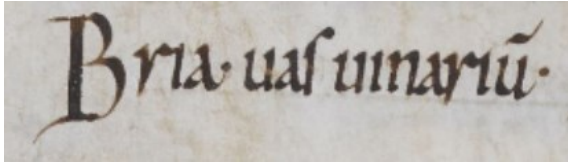 Bria· uaſ uinariū·